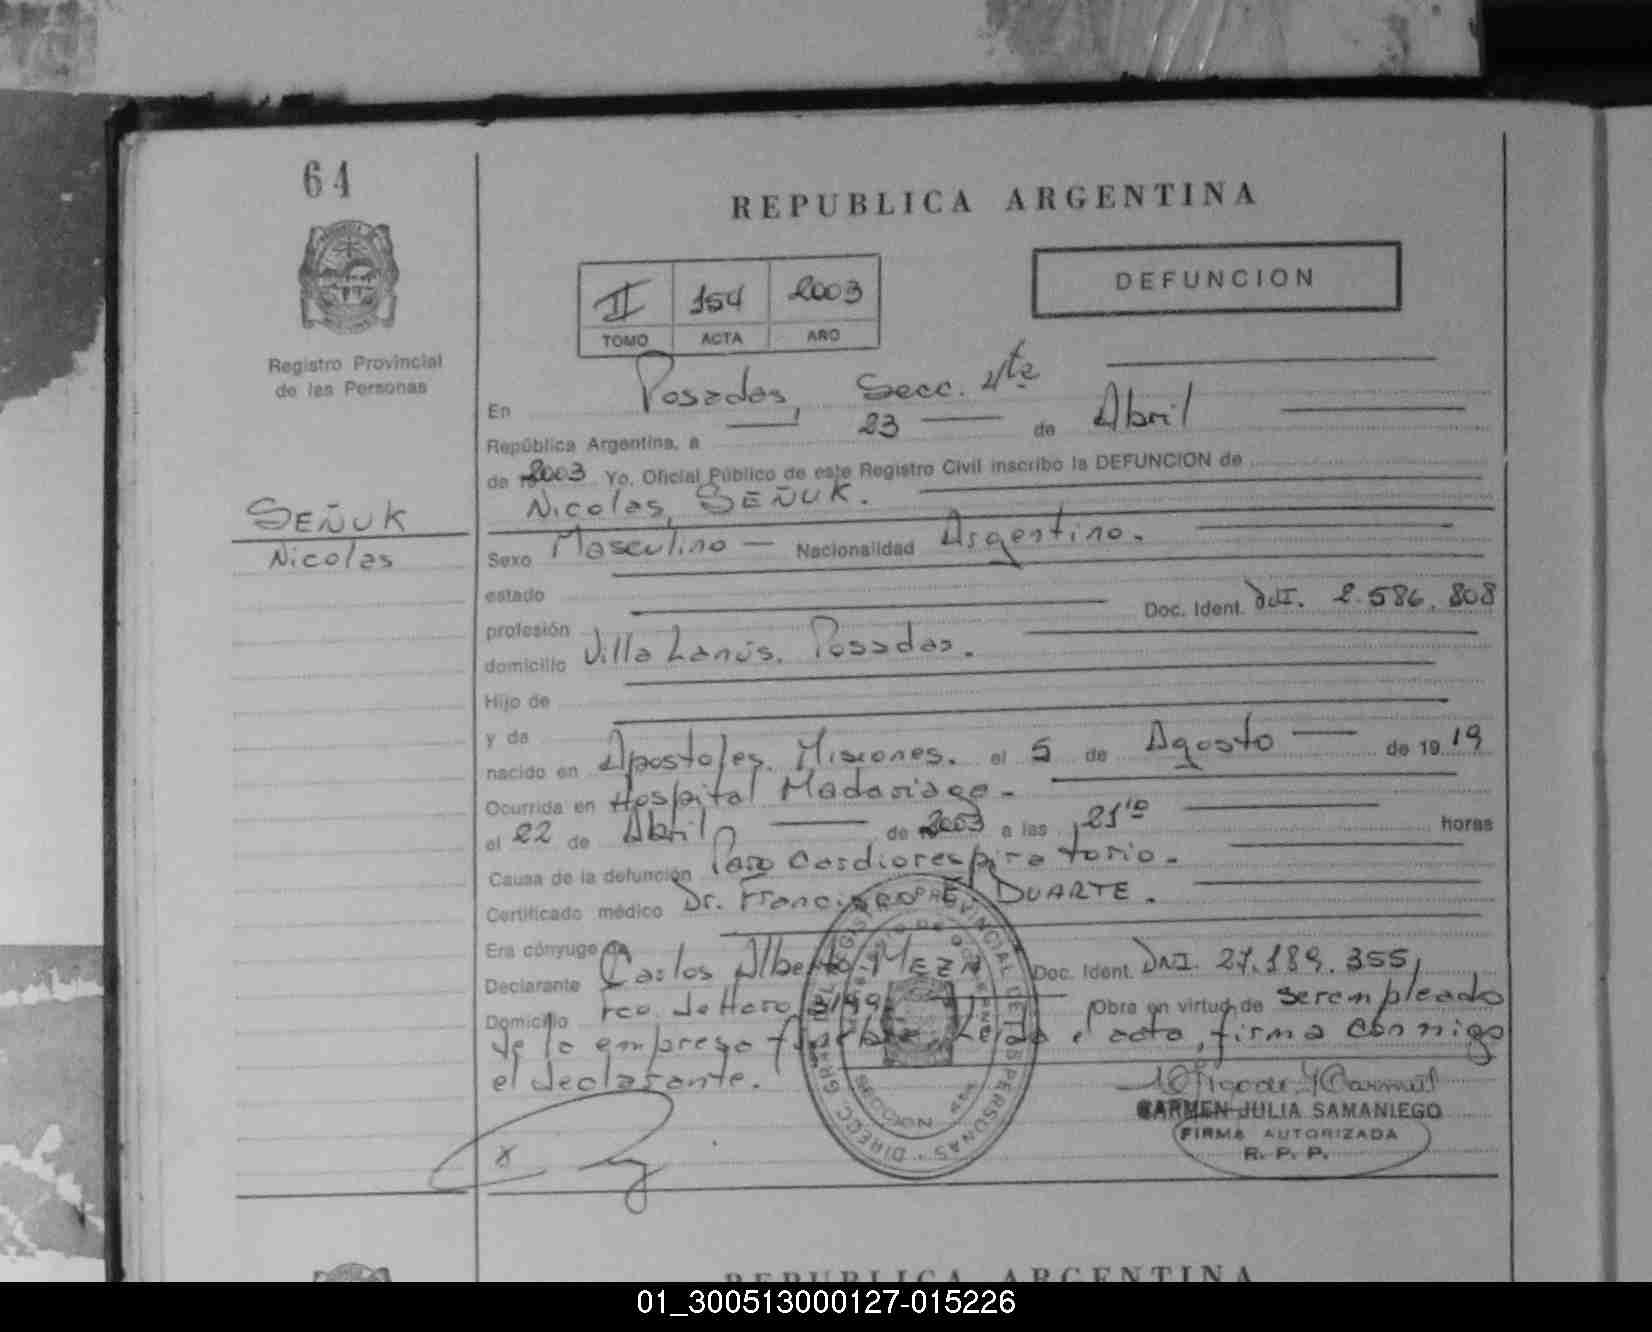 64
REPUBLICA ARGENTINA
DEFUNCION
II 154 2003
TOMO ACTA AÑO
Registro Provincial
de las Personas
En Posadas, Secc. 4ta
República Argentina, a 23 de Abril
de 2003 Yo, Oficial Público de este Registro Civil inscribo la DEFUNCION de
Nicolas, SEÑUK.
SEÑUK
Nicolas
Sexo Masculino — Nacionalidad Argentino.
estado
profesión Doc. Ident. DNI. 2.586.808
domicilio Villa Lanús. Posadas.
Hijo de
y de
nacido en Apostoles. Misiones. el 5 de Agosto — de 19 19
Ocurrida en Hospital Madariaga -
el 22 de Abril — de 2003 a las 21 10 horas
Causa de la defunción Paro Cardiorespiratorio.
Certificado médico Dr. Francisco DUARTE.
Era cónyuge de
Declarante Carlos Alberto MEZA Doc. Ident. DNI. 27.189.355,
Domicilio Fco. de Haro Obra en virtud de ser empleado
de la empresa Leida el acta, firma conmigo
el declarante.
x
CARMEN JULIA SAMANIEGO
FIRMA AUTORIZADA
R. P. P.
REPUBLICA ARGENTINA
01_300513000127-015226